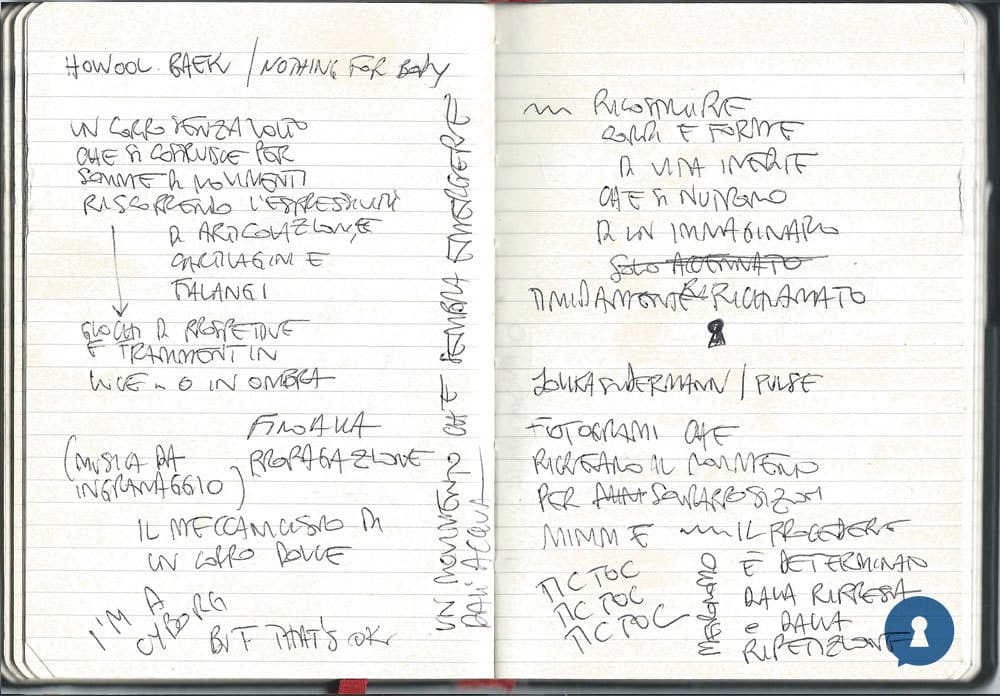 HOWOOL BAEK / NOTHING FOR BODY
UN CORPO SENZA VOLTO
CHE SI COSTRUISCE PER
SOMME DI MOVIMENTI
RISCOPRENDO L'ESPRESSIVITÀ
DI ARTICOLAZIONI,
CARTILAGINI E
FALANGI
GIOCHI DI PROSPETTIVE
E TRAMMENTI IN
LUCE O IN OMBRA
FINO ALLA
PROPAGAZIONE
(MUSICA DA
INGRANAGGIO)
IL MECCANICISMO DI
UN CORPO DOLCE
I'M A
CYBORG
BUT THAT'S OK
UN MOVIMENTO CHE SEMBRA EMERGERE
DALL'ACQUA
RICOSTRUIRE
CORPI E FORME
DI VITA INERTE
CHE SI NUTRONO
DI UN IMMAGINARIO
SOLO ACCENNATO
TIMIDAMENTE RICHIAMATO
/ PULSE
FOTOGRAMMI CHE
RICREANO IL MOVIMENTO
PER SOVRAPPOSIZIONI
MINIME IL PROCEDERE
È DETERMINATO
DALLA RIPRESA
e DALLA
RIPETIZIONE
MECCANO
TIC TOC
TIC TOC
TIC TOC